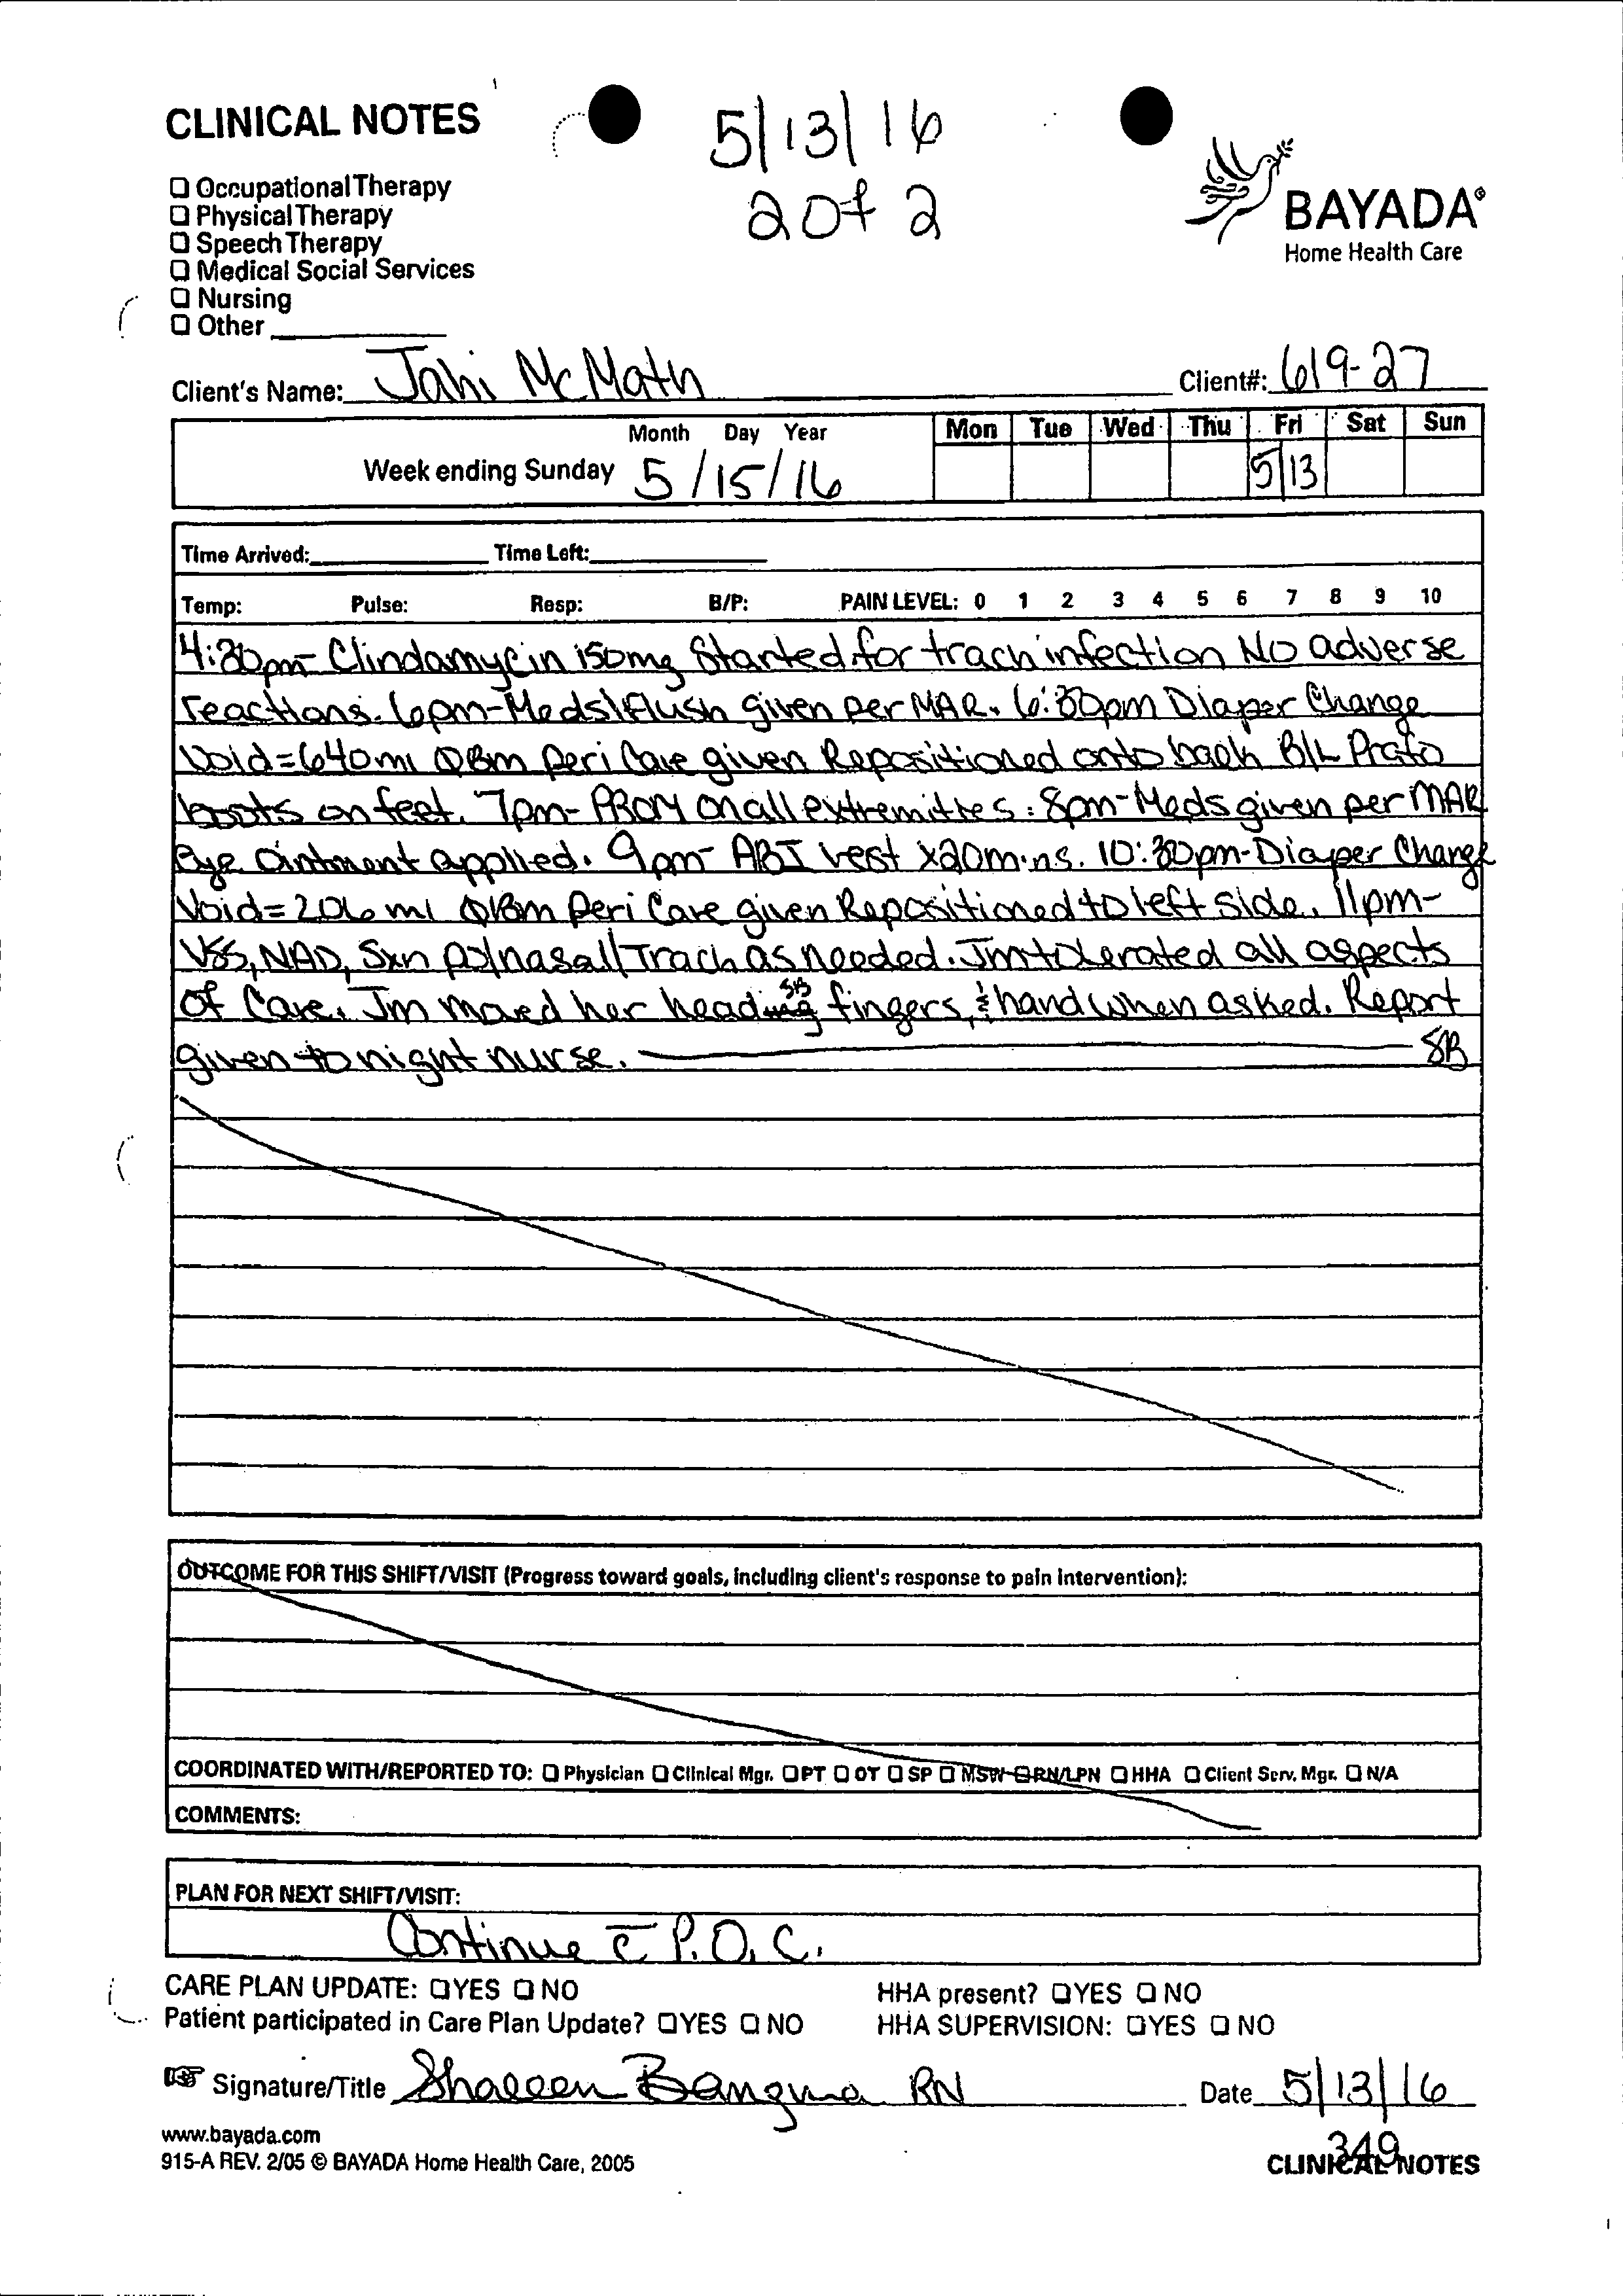 CLINICAL NOTES
5/13/16
2 of 2
☐ Occupational Therapy
☐ Physical Therapy
☐ Speech Therapy
☐ Medical Social Services
☐ Nursing
☐ Other
BAYADA®
Home Health Care
Client's Name: Jahi McMath
Client#: 619-27
Month Day Year
Week ending Sunday 5/15/16
Mon Tue Wed Thu Fri Sat Sun
5/13
Time Arrived: Time Left:
Temp: Pulse: Resp: B/P: PAIN LEVEL: 0 1 2 3 4 5 6 7 8 9 10
4:30pm- Clindamycin 150mg Started for trach infection No adverse
reactions. 6pm-Meds\Flush given per MAR. 6:30pm Diaper Change
Void=640ml ØBm Peri Care given Repositioned onto back B/L Prafo
boots on feet. 7pm- PROM on all extremities. 8pm-Meds given per MAR
Eye Ointment applied. 9pm- ABI vest x20mins. 10:30pm-Diaper Change
Void=206ml ØBm Peri Care given Repositioned to left side. 11pm-
VSS, NAD, Sxn po/nasal/Trach as needed. Jm tolerated all aspects
Of Care. Jm moved her head SB fingers, & hand when asked. Report
given to night nurse. SB
OUTCOME FOR THIS SHIFT/VISIT (Progress toward goals, including client's response to pain intervention):
COORDINATED WITH/REPORTED TO: ☐ Physician ☐ Clinical Mgr. ☐ PT ☐ OT ☐ SP ☐ MSW ☐ RN/LPN ☐ HHA ☐ Client Serv. Mgr. ☐ N/A
COMMENTS:
PLAN FOR NEXT SHIFT/VISIT:
Continue c̄ P.O.C.
CARE PLAN UPDATE: ☐ YES ☐ NO HHA present? ☐ YES ☐ NO
Patient participated in Care Plan Update? ☐ YES ☐ NO HHA SUPERVISION: ☐ YES ☐ NO
Signature/Title Shareen Bangura RN Date 5/13/16
www.bayada.com
915-A REV. 2/05 © BAYADA Home Health Care, 2005
349
CLINICAL NOTES